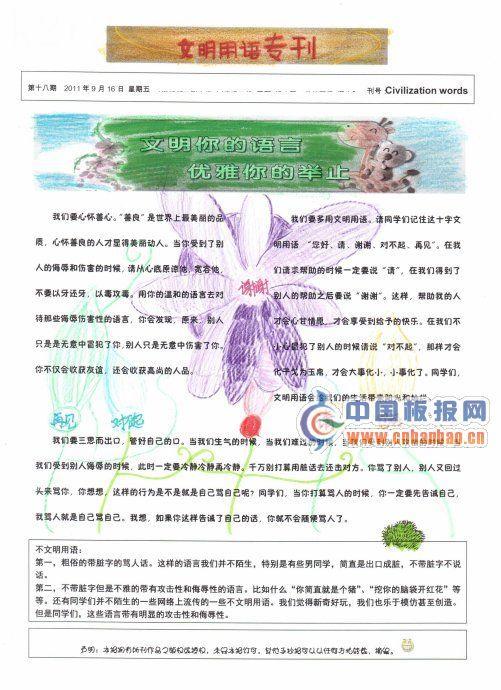 文明用语专刊
第十八期 2011年9月16日 星期五 刊号 Civilization words
文明你的语言
优雅你的举止
我们要心怀善心。“善良”是世界上最美丽的品
质，心怀善良的人才里得美丽动人。当你受到了别
人的侮辱和伤害的时候，请从心底原谅他，宽容他，
不要以牙还牙，以毒攻毒。用你的温和的语言去对
待那些侮辱伤害性的语言，你会发现，原来，别人
只是是无意中冒犯了你，别人只是无意中伤害了你。
你不仅会收获友谊，还会收获高尚的人品。
我们要多用文明用语。请同学们记住这十字文
明用语 “您好、请、谢谢、对不起、再见”。在我
们请求帮助的时候一定要说“请”，在我们得到了
别人的帮助之后要说“谢谢”。这样，帮助我的人
才会心甘情愿，才会享受到给予的快乐。在我们不
小心冒犯了别人的时候请说“对不起”，那样才会
化干戈为玉帛，才会大事化小，小事化了。同学们，
文明用语会给我们的生活带来
谢谢
再见 对不起
中国板报网
www.cnbanbao.cn
我们要三思而出口，管好自己的口。当我们生气的时候，当我们难过的时候，
我们受到别人侮辱的时候，此时一定要冷静冷静再冷静。千万别打算用脏话去还击对方。你骂了别人，别人又回过
头来骂你，你想想，这样的行为是不是就是自己骂自己呢？同学们，当你打算骂人的时候，你一定要先告诫自己，
我骂人就是自己骂自己。我想，如果你这样告诫了自己的话，你就不会随便骂人了。
不文明用语：
第一，粗俗的带脏字的骂人话。这样的语言我们并不陌生，特别是有些男同学，简直是出口成脏，不带脏字不说
话。
第二，不带脏字但是不雅的带有攻击性和侮辱性的语言。比如什么“你简直就是个猪”、“挖你的脑袋开红花”等
等。还有同学们并不陌生的一些网络上流传的一些不文明用语。我们觉得新奇好玩，我们也乐于模仿甚至创造。
但是同学们，这些语言带有明显的攻击性和侮辱性。